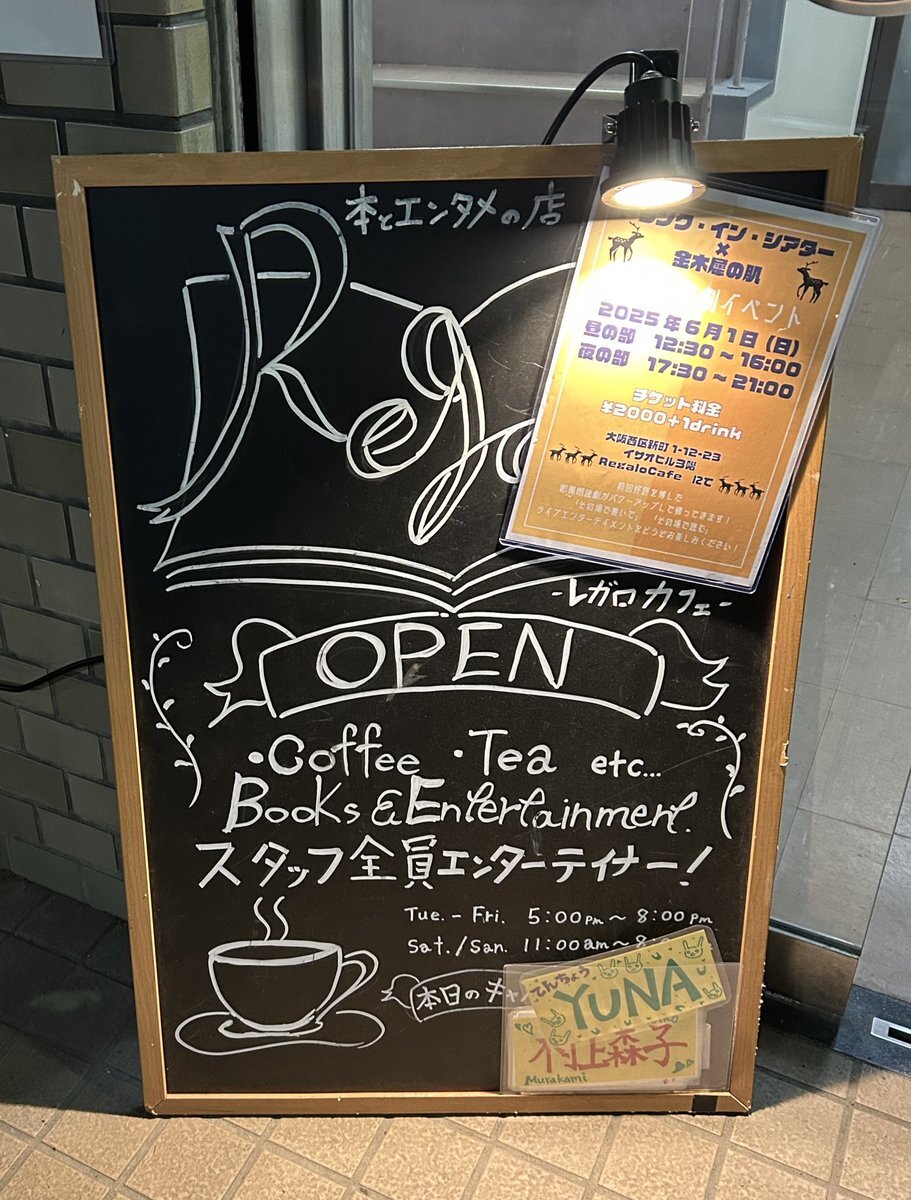 本とエンタメの店
Rega
-レガロカフェ-
OPEN
・Coffee ・Tea etc...
Books & Entertainment.
スタッフ全員エンターテイナー!
Tue. - Fri. 5:00pm~8:00pm
Sat./San. 11:00am~8
本日のキャ
てんちょう
YUNA
村上森子
Murakami
ング・イン・シアター
×
金木犀の肌
イベント
2025年6月1日(日)
昼の部 12:30~16:00
夜の部 17:30~21:00
チケット料金
¥2000+1drink
大阪西区新町1-12-23
イサオビル3階
RegaloCafe にて
前回好評を博した
即興朗読劇がパワーアップして帰ってきます!
「その場で書いて」「その場で読む」
ライブエンターテイメントをどうぞお楽しみください!